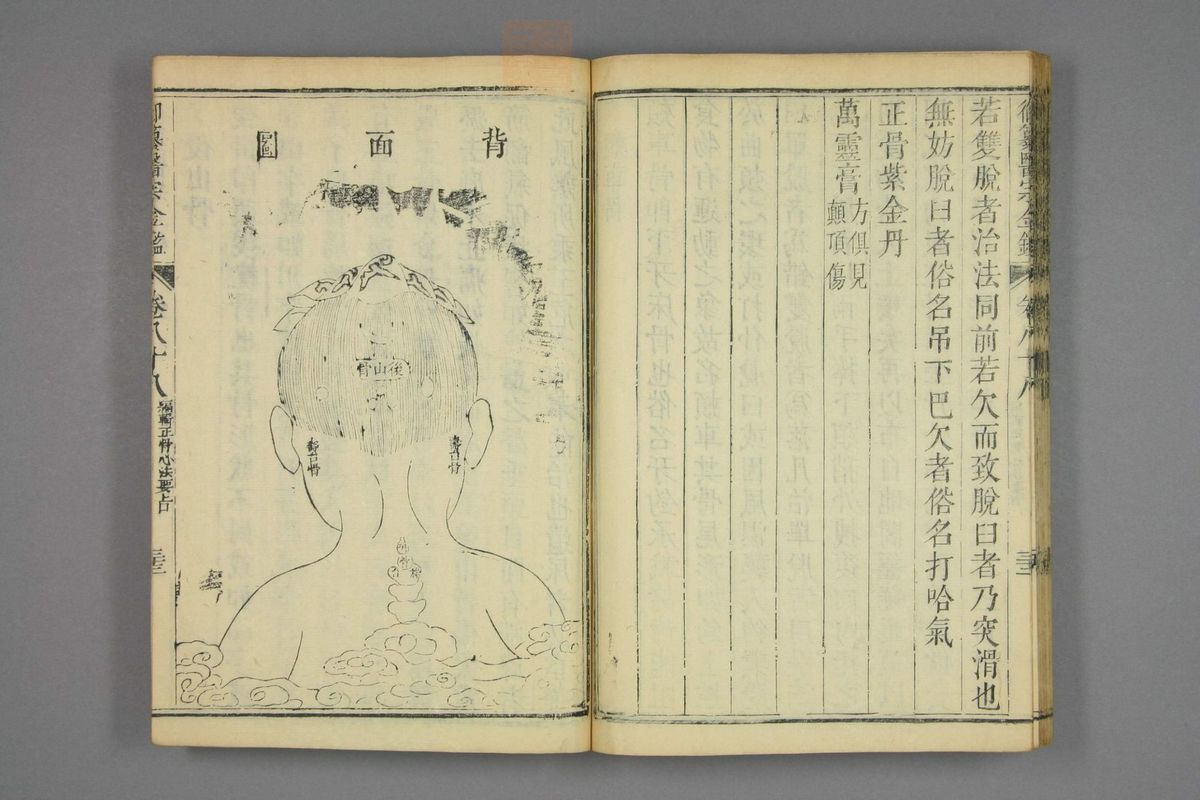 若雙脫者治法同前若欠而致脫臼者乃突滑也
無妨脫臼者俗名吊下巴欠者俗名打哈氣
正骨紫金丹
萬靈膏方俱見
顛頂傷
背面圖
後山骨
壽台骨
壽台骨
御纂醫宗金鑑
卷八十八
編輯正骨心法要旨
三十三